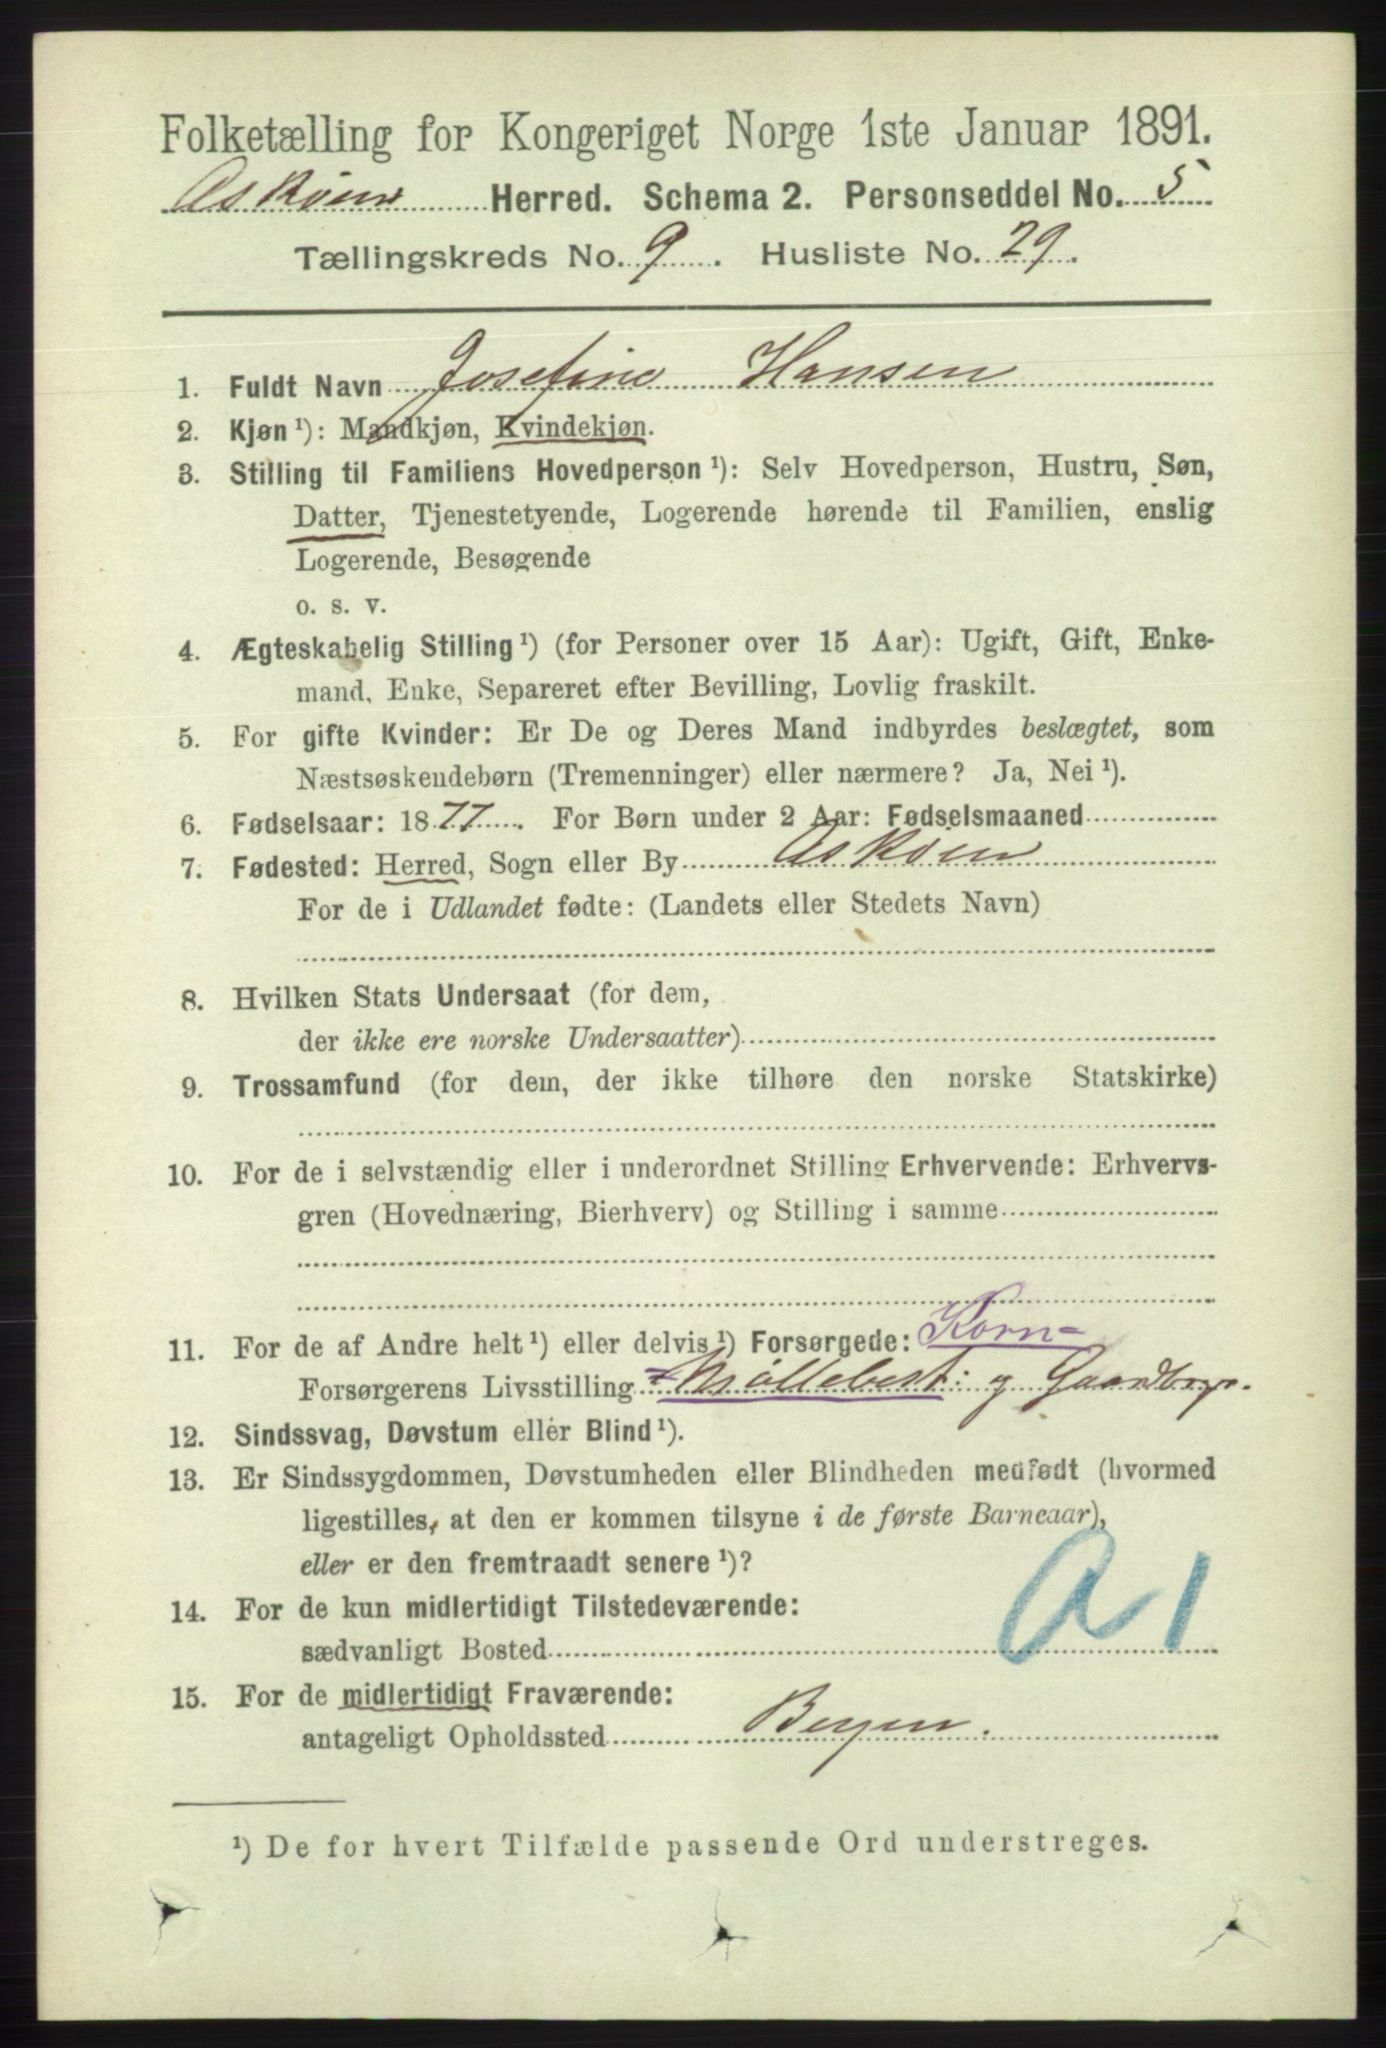 Folketælling for Kongeriget Norge 1ste Januar 1891.
Askøen Herred. Schema 2. Personseddel No. 5
Tællingskreds No. 9. Husliste No. 29.
1. Fuldt Navn Josefine Hansen
2. Kjøn ¹): Mandkjøn, Kvindekjøn.
3. Stilling til Familiens Hovedperson ¹): Selv Hovedperson, Hustru, Søn,
Datter, Tjenestetyende, Logerende hørende til Familien, enslig
Logerende, Besøgende
o. s. v.
4. Ægteskabelig Stilling ¹) (for Personer over 15 Aar): Ugift, Gift, Enke-
mand, Enke, Separeret efter Bevilling, Lovlig fraskilt.
5. For gifte Kvinder: Er De og Deres Mand indbyrdes beslægtet, som
Næstsøskendebørn (Tremenninger) eller nærmere? Ja, Nei ¹).
6. Fødselsaar: 1877. For Børn under 2 Aar: Fødselsmaaned
7. Fødested: Herred, Sogn eller By Askøen
For de i Udlandet fødte: (Landets eller Stedets Navn)
8. Hvilken Stats Undersaat (for dem,
der ikke ere norske Undersaatter)
9. Trossamfund (for dem, der ikke tilhøre den norske Statskirke)
10. For de i selvstændig eller i underordnet Stilling Erhvervende: Erhvervs-
gren (Hovednæring, Bierhverv) og Stilling i samme
11. For de af Andre helt ¹) eller delvis ¹) Forsørgede: Korn=
Forsørgerens Livsstilling =Møllebest: og Gaardbrgr.
12. Sindssvag, Døvstum eller Blind ¹).
13. Er Sindssygdommen, Døvstumheden eller Blindheden medfødt (hvormed
ligestilles, at den er kommen tilsyne i de første Barneaar),
eller er den fremtraadt senere ¹)?
14. For de kun midlertidigt Tilstedeværende:
sædvanligt Bosted
A 1
15. For de midlertidigt Fraværende:
antageligt Opholdssted Bergen.
¹) De for hvert Tilfælde passende Ord understreges.